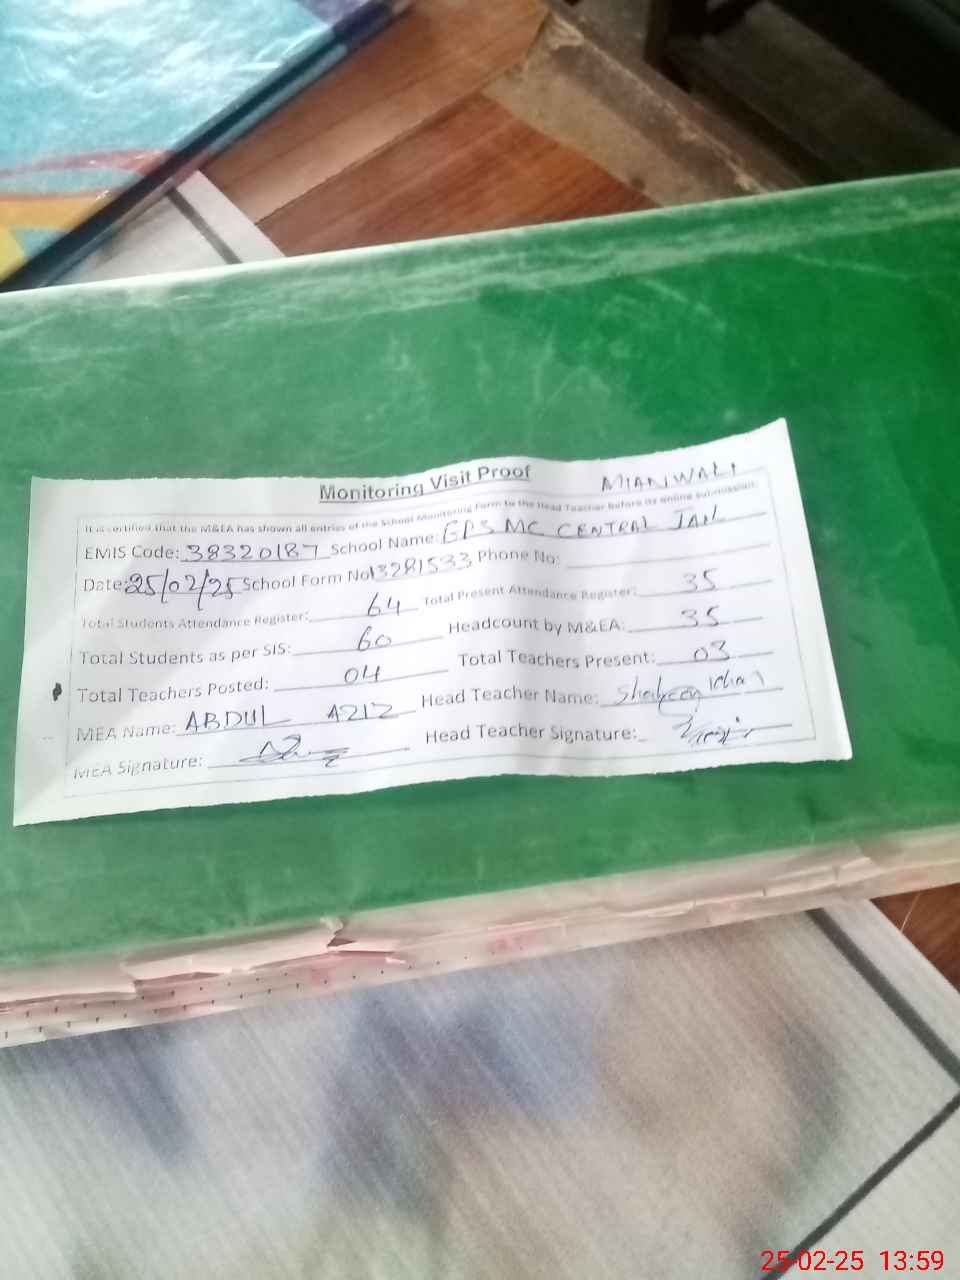 Monitoring Visit Proof
MIANWALI
It is certified that the M&EA has shown all entries of the School Monitoring Form to the Head Teacher before its online submission.
EMIS Code: 38320187 School Name: GPS MC CENTRAL JAIL
Date: 25/02/25 School Form No: 13281533 Phone No:
Total Students Attendance Register: 64 Total Present Attendance Register: 35
Total Students as per SIS: 60 Headcount by M&EA: 35
Total Teachers Posted: 04 Total Teachers Present: 03
MEA Name: ABDUL AZIZ Head Teacher Name: Khan
MEA Signature: Head Teacher Signature:
25-02-25 13:59